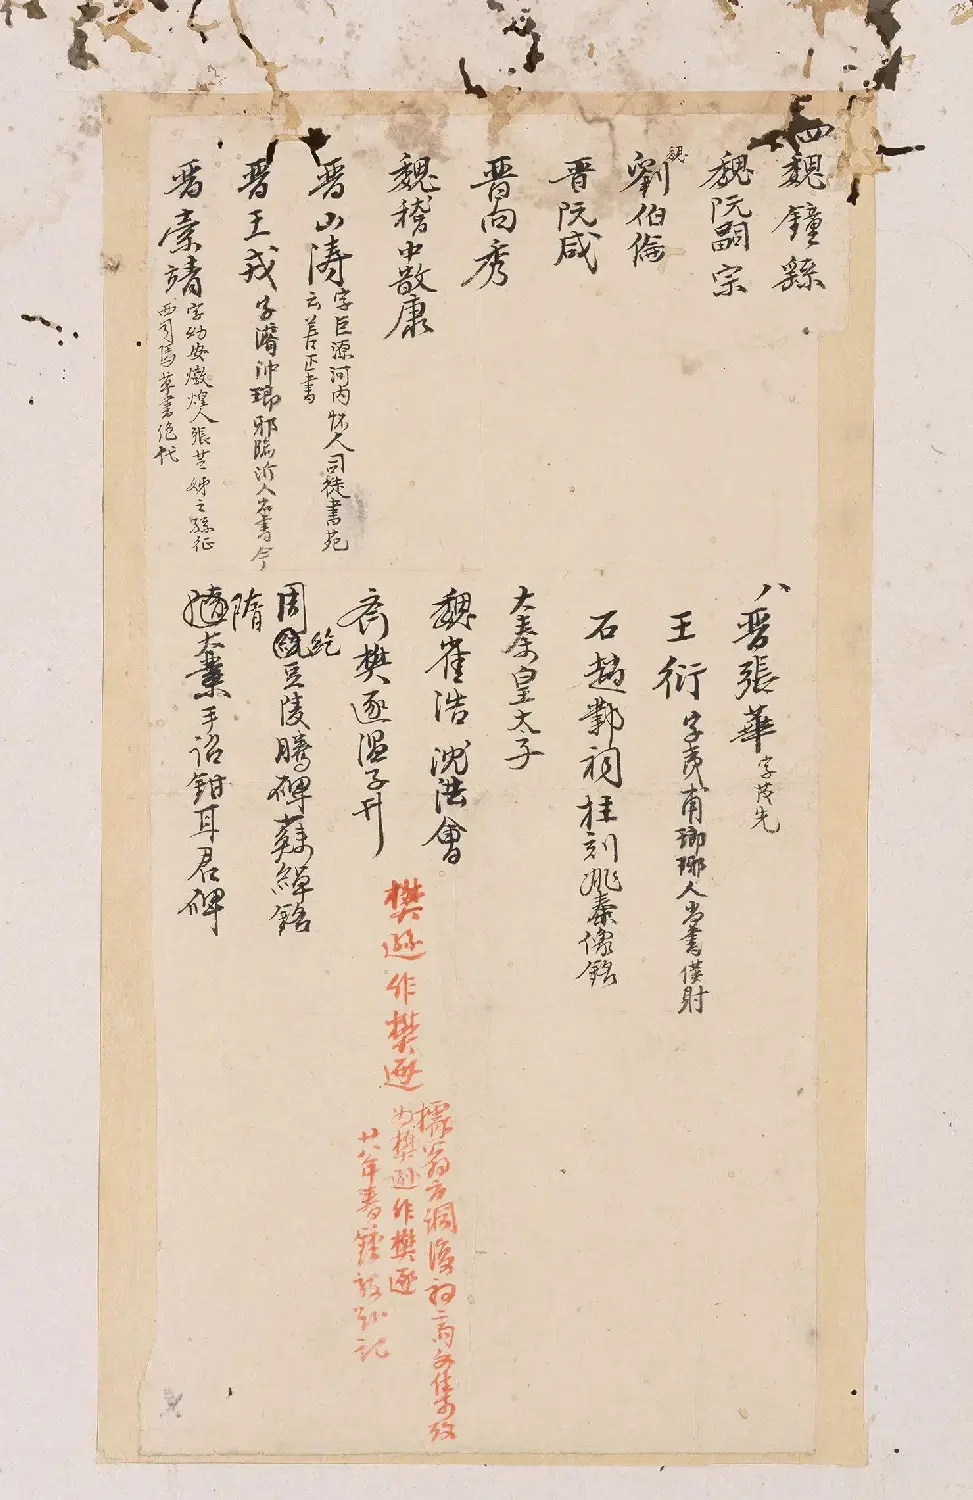 四 魏鐘繇
魏阮嗣宗
魏劉伯倫
晉阮咸
晉向秀
魏嵇中散康
晉山濤 字巨源河内怀人司徒書苑
云善正書
晉王戎 字濬沖瑯邪臨沂人名書今
晉索靖 字幼安燉煌人張芝姊之孫征
西司馬草書絶代
八 晉張華 字茂先
王衍 字夷甫瑯琊人尚書僕射
石趙鄴祠柱刻 秦像銘
大秦皇太子
魏崔浩 沈法會
齊樊逐溫子升
周 豆陵騰碑蘇綽銘
紇
隋
大業手诏鉗耳君碑
樊遜作樊逐
方綱復初齋文集攷
为樊遜作樊逐
廿八年春鍾 記